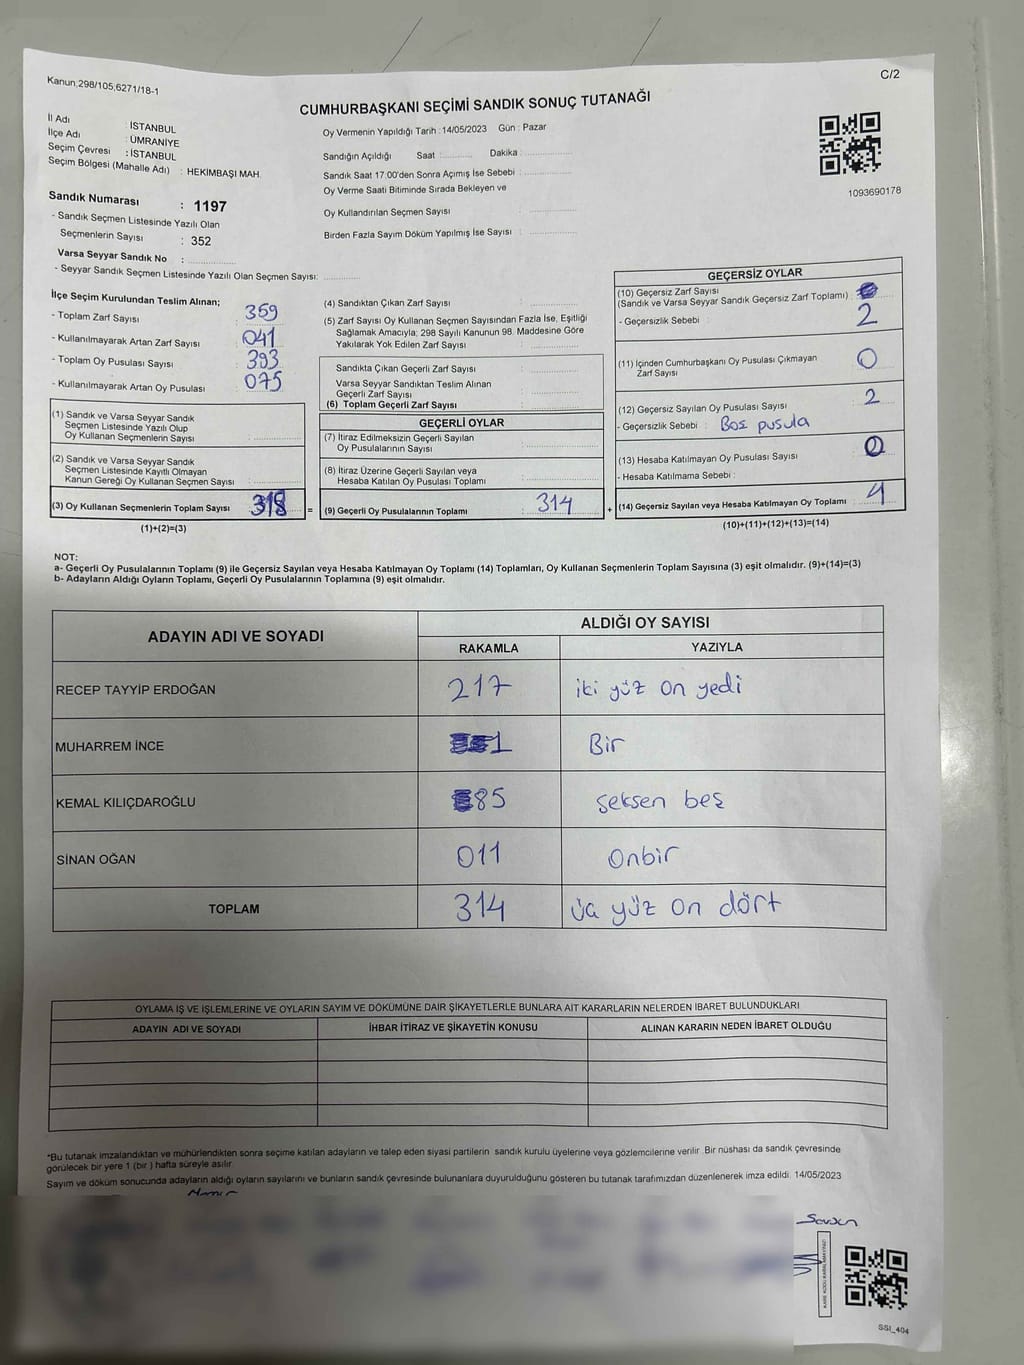 Kanun;298/105;6271/18-1
C/2
CUMHURBAŞKANI SEÇİMİ SANDIK SONUÇ TUTANAĞI
İl Adı : İSTANBUL
İlçe Adı : ÜMRANİYE
Seçim Çevresi : İSTANBUL
Seçim Bölgesi (Mahalle Adı) : HEKİMBAŞI MAH.
Sandık Numarası : 1197
- Sandık Seçmen Listesinde Yazılı Olan
Seçmenlerin Sayısı : 352
Varsa Seyyar Sandık No :
- Seyyar Sandık Seçmen Listesinde Yazılı Olan Seçmen Sayısı:
Oy Vermenin Yapıldığı Tarih : 14/05/2023 Gün : Pazar
Sandığın Açıldığı Saat : Dakika :
Sandık Saat 17:00'den Sonra Açımış İse Sebebi :
Oy Verme Saati Bitiminde Sırada Bekleyen ve
Oy Kullandırılan Seçmen Sayısı
Birden Fazla Sayım Döküm Yapılmış İse Sayısı :
1093690178
İlçe Seçim Kurulundan Teslim Alınan;
- Toplam Zarf Sayısı : 359
- Kullanılmayarak Artan Zarf Sayısı : 041
- Toplam Oy Pusulası Sayısı : 393
- Kullanılmayarak Artan Oy Pusulası : 075
(1) Sandık ve Varsa Seyyar Sandık
Seçmen Listesinde Yazılı Olup
Oy Kullanan Seçmenlerin Sayısı :
(2) Sandık ve Varsa Seyyar Sandık
Seçmen Listesinde Kayıtlı Olmayan
Kanun Gereği Oy Kullanan Seçmen Sayısı :
(3) Oy Kullanan Seçmenlerin Toplam Sayısı 318 =
(1)+(2)=(3)
(4) Sandıktan Çıkan Zarf Sayısı :
(5) Zarf Sayısı Oy Kullanan Seçmen Sayısından Fazla İse, Eşitliği
Sağlamak Amacıyla; 298 Sayılı Kanunun 98. Maddesine Göre
Yakılarak Yok Edilen Zarf Sayısı :
Sandıkta Çıkan Geçerli Zarf Sayısı :
Varsa Seyyar Sandıktan Teslim Alınan
Geçerli Zarf Sayısı :
(6) Toplam Geçerli Zarf Sayısı :
GEÇERLİ OYLAR
(7) İtiraz Edilmeksizin Geçerli Sayılan
Oy Pusulalarının Sayısı :
(8) İtiraz Üzerine Geçerli Sayılan veya
Hesaba Katılan Oy Pusulası Toplamı :
(9) Geçerli Oy Pusulalarının Toplamı : 314 +
GEÇERSİZ OYLAR
(10) Geçersiz Zarf Sayısı
(Sandık ve Varsa Seyyar Sandık Geçersiz Zarf Toplamı) :
- Geçersizlik Sebebi : 2
(11) İçinden Cumhurbaşkanı Oy Pusulası Çıkmayan
Zarf Sayısı : 0
(12) Geçersiz Sayılan Oy Pusulası Sayısı : 2
- Geçersizlik Sebebi : Boş pusula
(13) Hesaba Katılmayan Oy Pusulası Sayısı :
- Hesaba Katılmama Sebebi :
(14) Geçersiz Sayılan veya Hesaba Katılmayan Oy Toplamı : 4
(10)+(11)+(12)+(13)=(14)
NOT:
a- Geçerli Oy Pusulalarının Toplamı (9) ile Geçersiz Sayılan veya Hesaba Katılmayan Oy Toplamı (14) Toplamları, Oy Kullanan Seçmenlerin Toplam Sayısına (3) eşit olmalıdır. (9)+(14)=(3)
b- Adayların Aldığı Oyların Toplamı, Geçerli Oy Pusulalarının Toplamına (9) eşit olmalıdır.
ADAYIN ADI VE SOYADI
ALDIĞI OY SAYISI
RAKAMLA YAZIYLA
RECEP TAYYİP ERDOĞAN 217 iki yüz on yedi
MUHARREM İNCE 1 Bir
KEMAL KILIÇDAROĞLU 85 seksen beş
SİNAN OĞAN 011 Onbir
TOPLAM 314 üç yüz on dört
OYLAMA İŞ VE İŞLEMLERİNE VE OYLARIN SAYIM VE DÖKÜMÜNE DAİR ŞİKAYETLERLE BUNLARA AİT KARARLARIN NELERDEN İBARET BULUNDUKLARI
ADAYIN ADI VE SOYADI İHBAR İTİRAZ VE ŞİKAYETİN KONUSU ALINAN KARARIN NEDEN İBARET OLDUĞU
*Bu tutanak imzalandıktan ve mühürlendikten sonra seçime katılan adayların ve talep eden siyasi partilerin sandık kurulu üyelerine veya gözlemcilerine verilir. Bir nüshası da sandık çevresinde
görülecek bir yere 1 (bir ) hafta süreyle asılır.
Sayım ve döküm sonucunda adayların aldığı oyların sayılarını ve bunların sandık çevresinde bulunanlara duyurulduğunu gösteren bu tutanak tarafımızdan düzenlenerek imza edildi. 14/05/2023
SSI_404